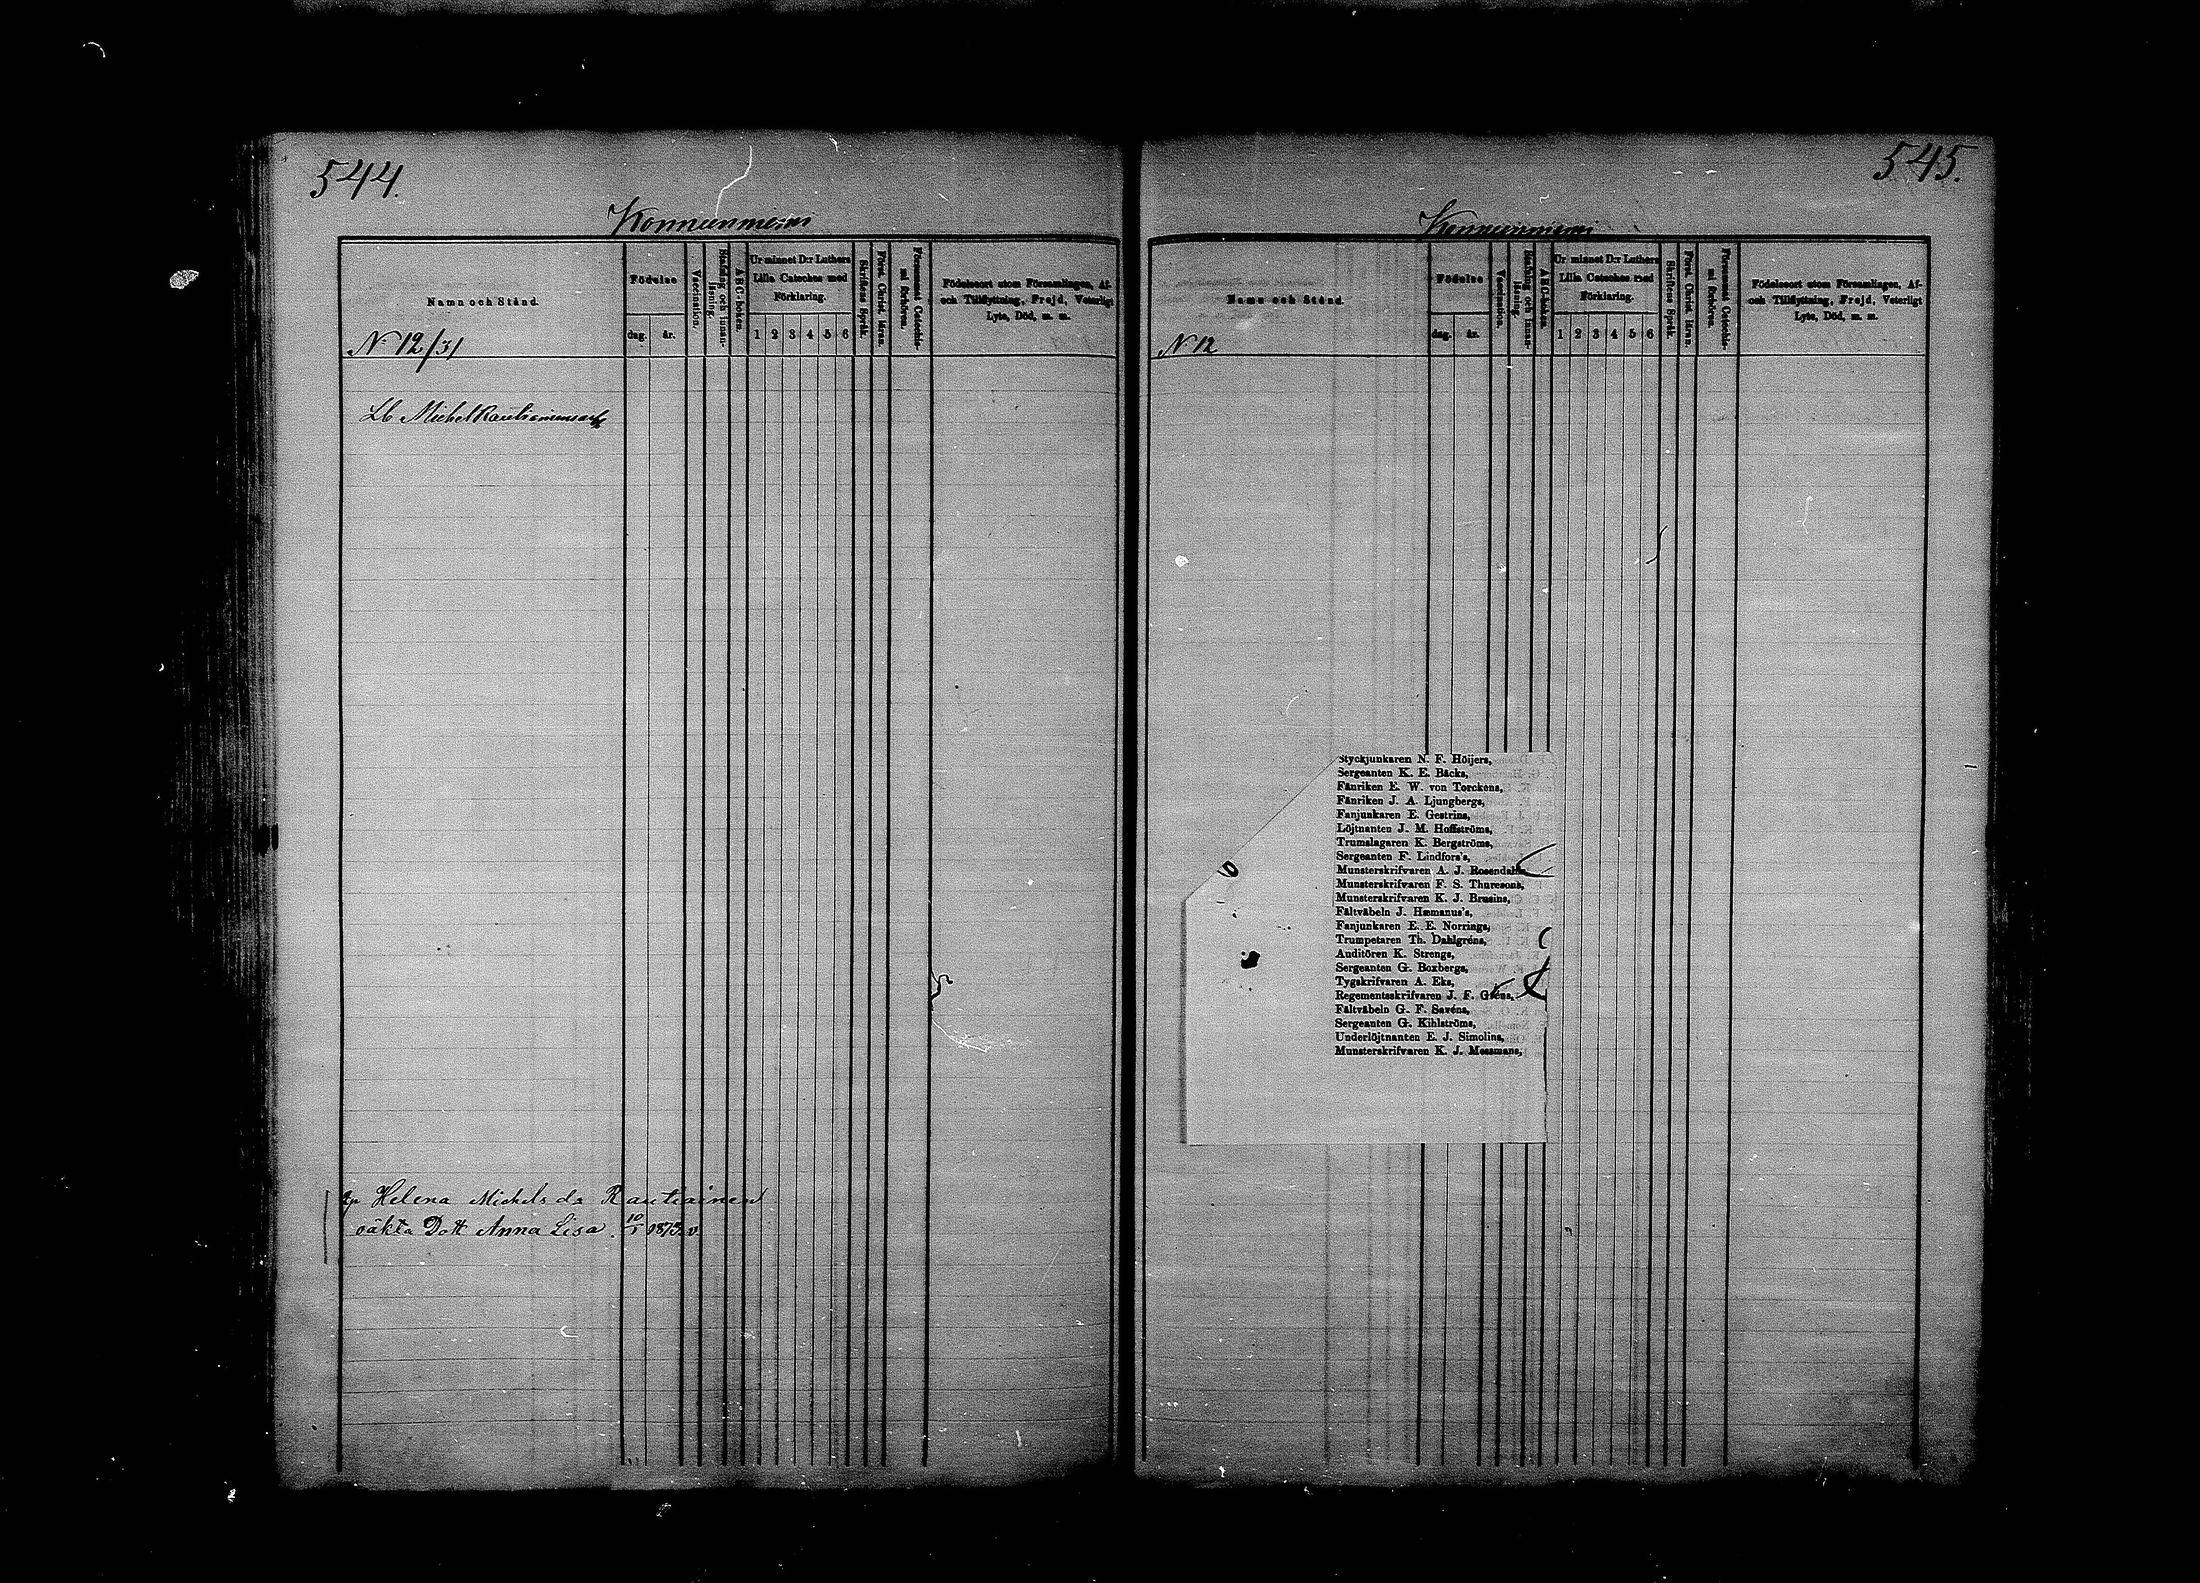 544.
Konnunmemi
Namn och Stånd.
Födelse
dag. år.
Vaccination.
Stafning och innan-
läsning.
ABC-boken.
Ur minnet D:r Luthers
Lilla Cateches med
Förklaring.
1 2 3 4 5 6
Skriftens Språk.
Först. Christ. läran.
Försummat Catechis-
mi förhören.
Födelseort utom Församlingen, Af-
och Tillflyttning, Frejd, Veterligt
Lyte, Död, m. m.
N 12/31
Lb Michel
Helena Michels dr Rautiainen
oäkta Dott Anna Lisa. 10/1 1873. v
545.
Konnunmemi
Namn och Stånd.
Födelse
dag. år.
Vaccination.
Stafning och innan-
läsning.
ABC-boken.
Ur minnet D:r Luthers
Lilla Cateches med
Förklaring.
1 2 3 4 5 6
Skriftens Språk.
Först. Christ. läran.
Försummat Catechis-
mi förhören.
Födelseort utom Församlingen, Af-
och Tillflyttning, Frejd, Veterligt
Lyte, Död, m. m.
N 12
Styckjunkaren N. F. Höijers,
Sergeanten K. E. Bäcks,
Fänriken E. W. von Torckens,
Fänriken J. A. Ljungbergs,
Fanjunkaren E. Gestrins,
Löjtnanten J. M. Hoffströms,
Trumslagaren K. Bergströms,
Sergeanten F. Lindfors's,
Munsterskrifvaren A. J. Rosendahls,
Munsterskrifvaren F. S. Thuresons,
Munsterskrifvaren K. J. Brusins,
Fältväbeln J. Hæmanus's,
Fanjunkaren E. E. Norrings,
Trumpetaren Th. Dahlgréns,
Auditören K. Strengs,
Sergeanten G. Boxbergs,
Tygskrifvaren A. Eks,
Regementsskrifvaren J. F.
Fältväbeln G. F. Savéns,
Sergeanten G. Kihlströms,
Underlöjtnanten E. J. Simolins,
Munsterskrifvaren K. J. Mossmans,